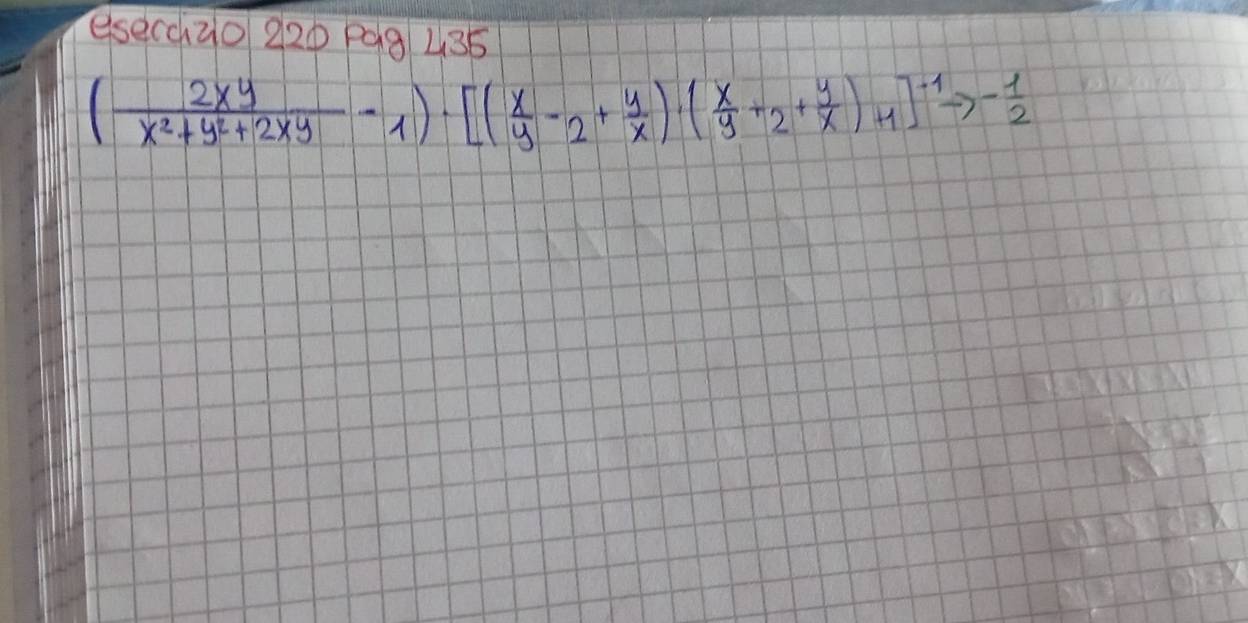 esercizio 220 pag 435
(2xy / x²+y²+2xy - 1) · [(x/y - 2 + y/x) · (x/y + 2 + y/x) +1]⁻¹ → -1/2